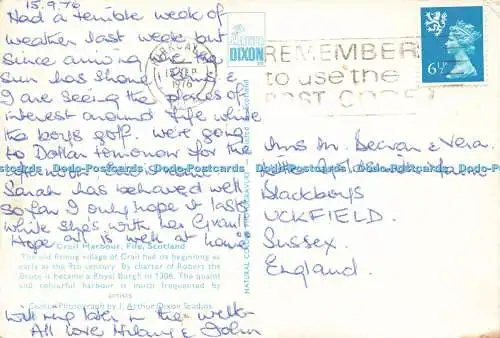 15.9.76
Had a terrible week of
weather last week but
since arriving here the
sun has shone. Mum &
I are seeing the places of
interest around Fife while
the boys golf. We're going
to Dollar tomorrow for the
Sarah has behaved well
so far I only hope it lasts
while she's with her Gran!!
Hope all is well at home
Crail Harbour, Fife, Scotland
The old fishing village of Crail had its beginning as
early as the 9th century. By charter of Robert the
Bruce it became a Royal Burgh in 1306. The quaint
and colourful harbour is much frequented by
artists
Colour Photograph by J. Arthur Dixon Studios
Will ring later in the week
All love Hilary & John
DIXON
NATURAL COLOUR PHOTOGRAVURE
15 SEP
1976
REMEMBER
to use the
POST CODE
6½P
Mrs M. Bevan & Vera
Blackboys
UCKFIELD.
Sussex.
England.
Dodo-Postcards Dodo-Postcards Dodo-Postcards Dodo-Postcards Dodo-Postcards